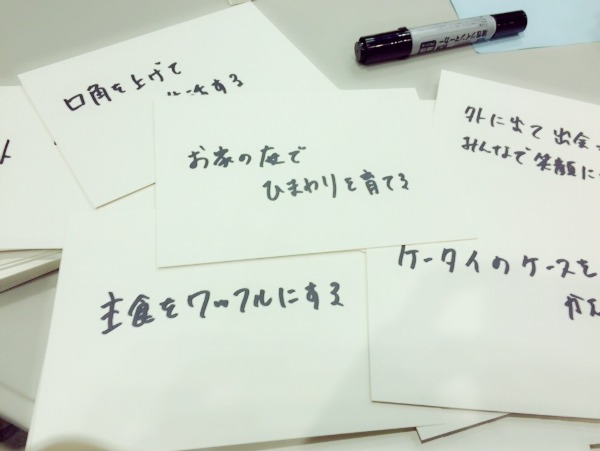 口角を上げて
生活する
お家の庭で
ひまわりを育てる
外に出て 出会
みんなで笑顔に
主食をワッフルにする
ケータイのケースを